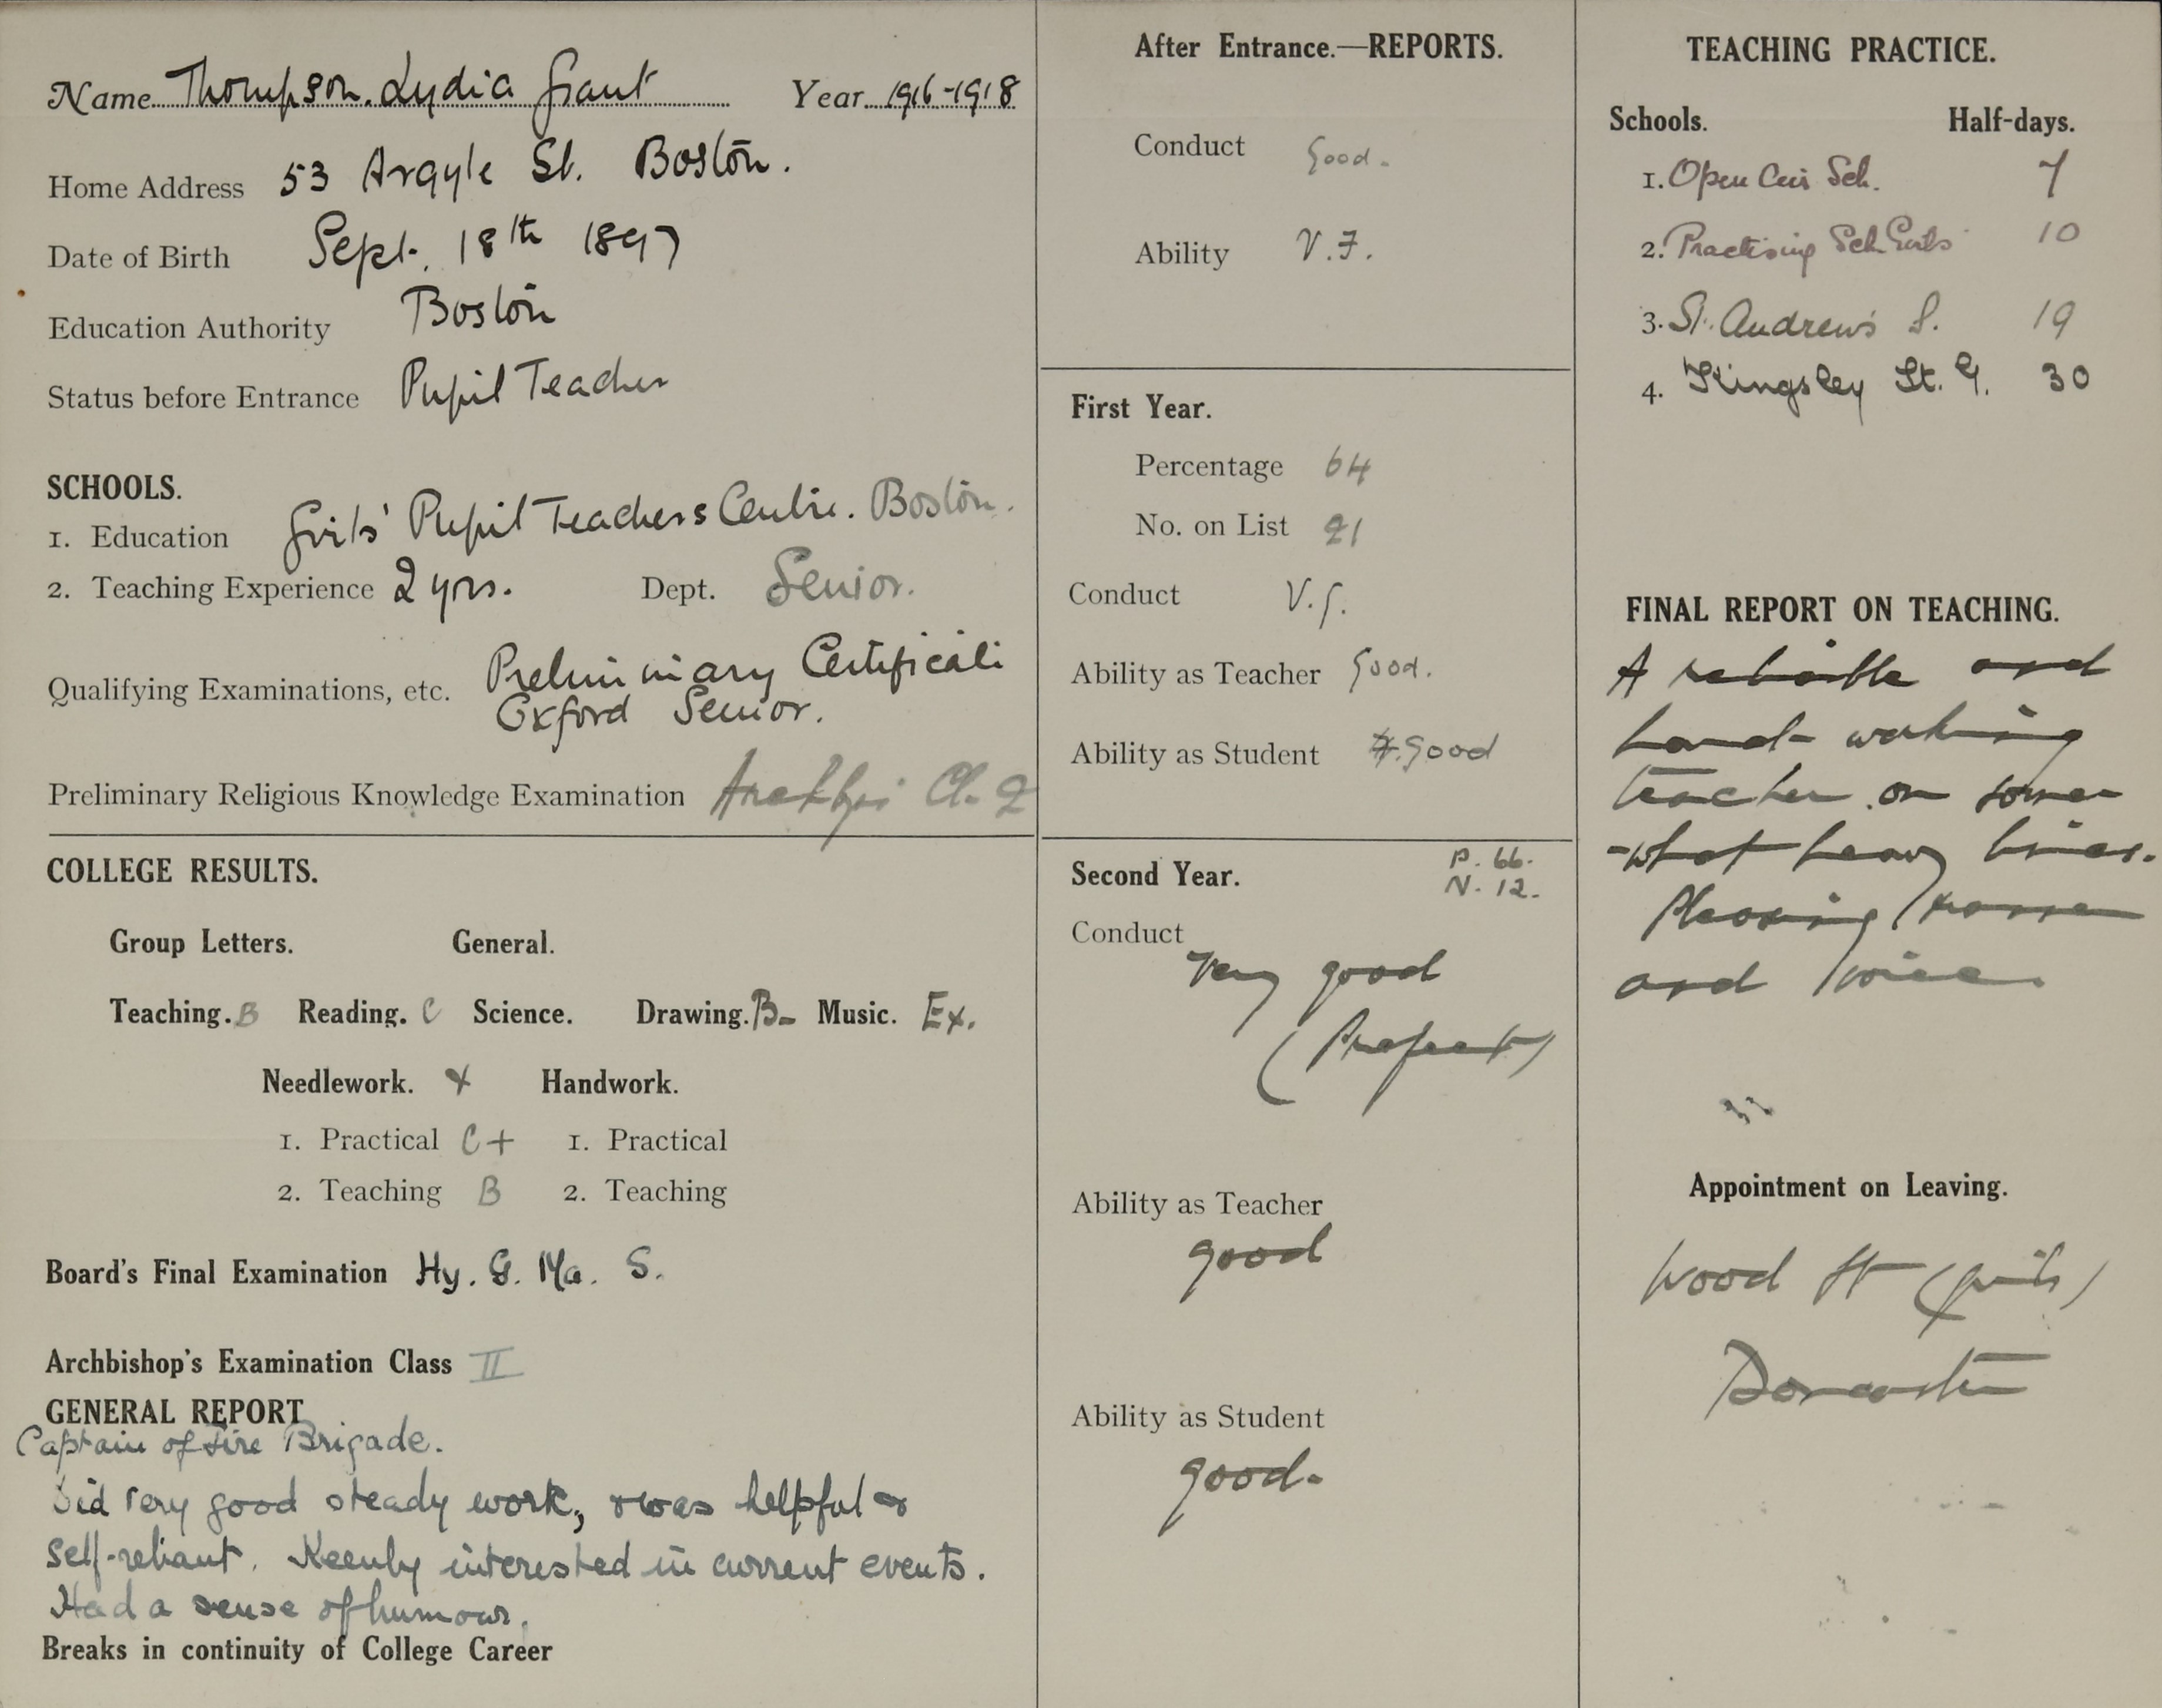 Name Thompson. Lydia Grant Year 1916-1918
Home Address 53 Argyle St. Boston.
Date of Birth Sept. 18th 1897
Education Authority Boston
Status before Entrance Pupil Teacher
SCHOOLS.
1. Education Girls' Pupil Teachers Centre. Boston.
2. Teaching Experience 2 yrs. Dept. Senior.
Qualifying Examinations, etc. Preliminary Certificate
Oxford Senior.
Preliminary Religious Knowledge Examination Archbps Cl. 2
COLLEGE RESULTS.
Group Letters. General.
Teaching. B Reading. C Science. Drawing. B- Music. Ex.
Needlework. + Handwork.
1. Practical C+ 1. Practical
2. Teaching B 2. Teaching
Board's Final Examination Hy. G. Ma. S.
Archbishop's Examination Class II
GENERAL REPORT
Captain of Fire Brigade.
Did very good steady work, & was helpful &
self-reliant. Keenly interested in current events.
Had a sense of humour.
Breaks in continuity of College Career
After Entrance.—REPORTS.
Conduct Good.
Ability V.F.
First Year.
Percentage 64
No. on List 21
Conduct V.G.
Ability as Teacher Good.
Ability as Student Good
Second Year. P. 66.
N. 12.
Conduct
Very good
(Prefect)
Ability as Teacher
good
Ability as Student
good.
TEACHING PRACTICE.
Schools. Half-days.
1. Open Air Sch. 7
2. Practising Sch. Girls 10
3. St. Andrew's S. 19
4. Kingsley St. G. 30
FINAL REPORT ON TEACHING.
A reliable and
hard-working
teacher on some
-what heavy lines.
Pleasing manner
and voice.
Appointment on Leaving.
Wood St (girls)
Doncaster